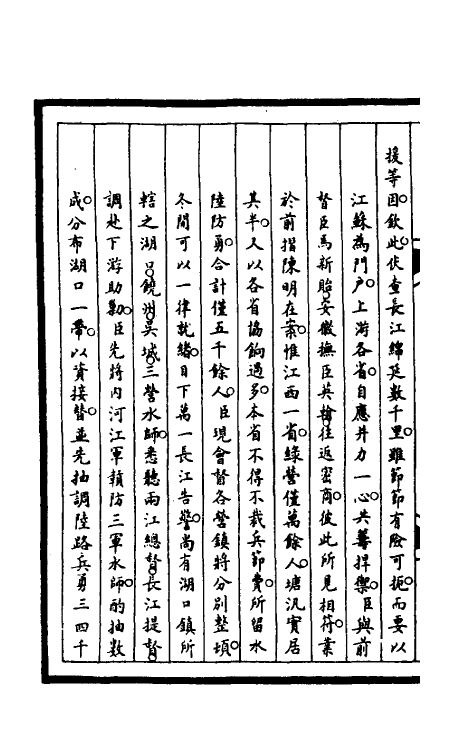 援等因欽此伏查長江綿延數千里雖節節有險可扼而要以
江蘇為門戶上游各省自應并力一心共籌捍禦臣與前
督臣馬新貽安徽撫臣英翰往返密商彼此所見相符業
於前摺陳明在案惟江西一省綠營僅萬餘人塘汛實居
其半又以各省協餉過多本省不得不裁兵節費所留水
陸防勇合計僅五千餘人臣現會督各營鎮將分別整頓
冬間可以一律就緒目下萬一長江告警尚有湖口鎮所
轄之湖口饒州吳城三營水師悉聽兩江總督長江提督
調赴下游助勦臣先將內河江軍贛防三軍水師酌抽數
成分布湖口一帶以資接替並先抽調陸路兵勇三四千